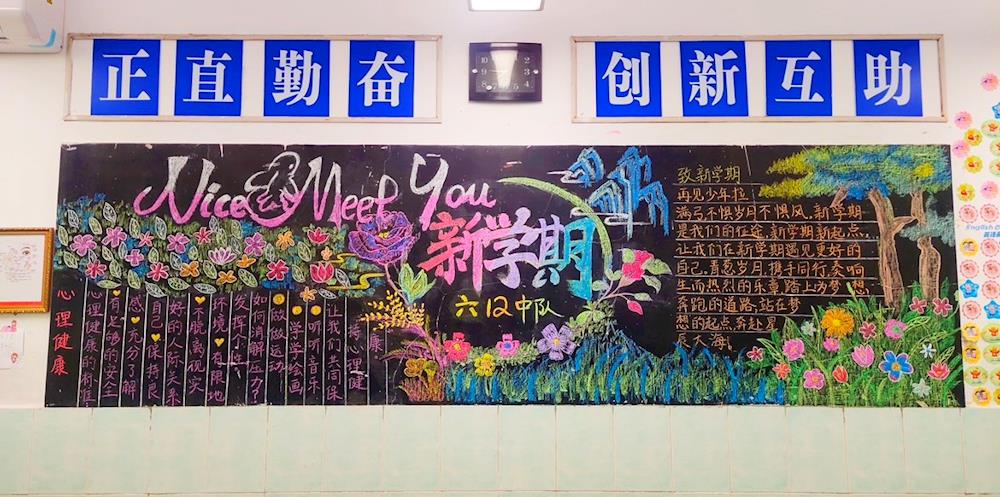 正直勤奋
创新互助
Nice Meet You
新学期
中队
心理健康
心理健康的标准:
♥有足够的安全
感♥充分了解
自己♥保持良
好的人际关系
♥不脱离现实
环境♥有限地
发挥个性
如何消解压力?
做做运动
学学绘画
听听音乐
让我们共同保
持心理健康
致新学期
再见少年拉
满弓,不惧岁月不惧风。新学期
是我们的征途,新学期新起点,
让我们在新学期遇见更好的
自己,青葱岁月,携手同行,奏响
生而热烈的乐章,踏上为梦想
奔跑的道路,站在梦
想的起点,奔赴星
辰大海!
English